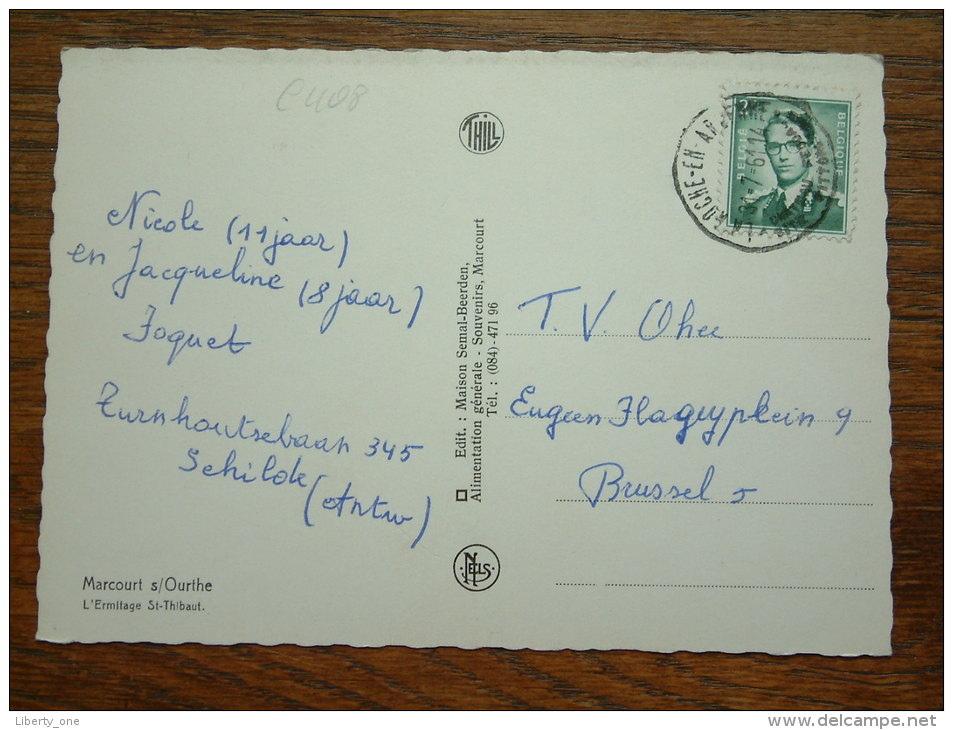 e408
THILL
Nicole (11 jaar)
en Jacqueline (8 jaar)
Joquet
Turnhoutsebaan 345
Schilde
(Antw)
Marcourt s/Ourthe
L'Ermitage St-Thibaut.
Edit. : Maison Semal-Beerden,
Alimentation générale - Souvenirs, Marcourt
Tél. : (084) - 471 96
NELS
BELGIË
BELGIQUE
ROCHE-EN-AR
31-7-61 14
T. V. Ohee
Eugeen Flageyplein 9
Brussel 5
Liberty_one
http://www.delcampe.net